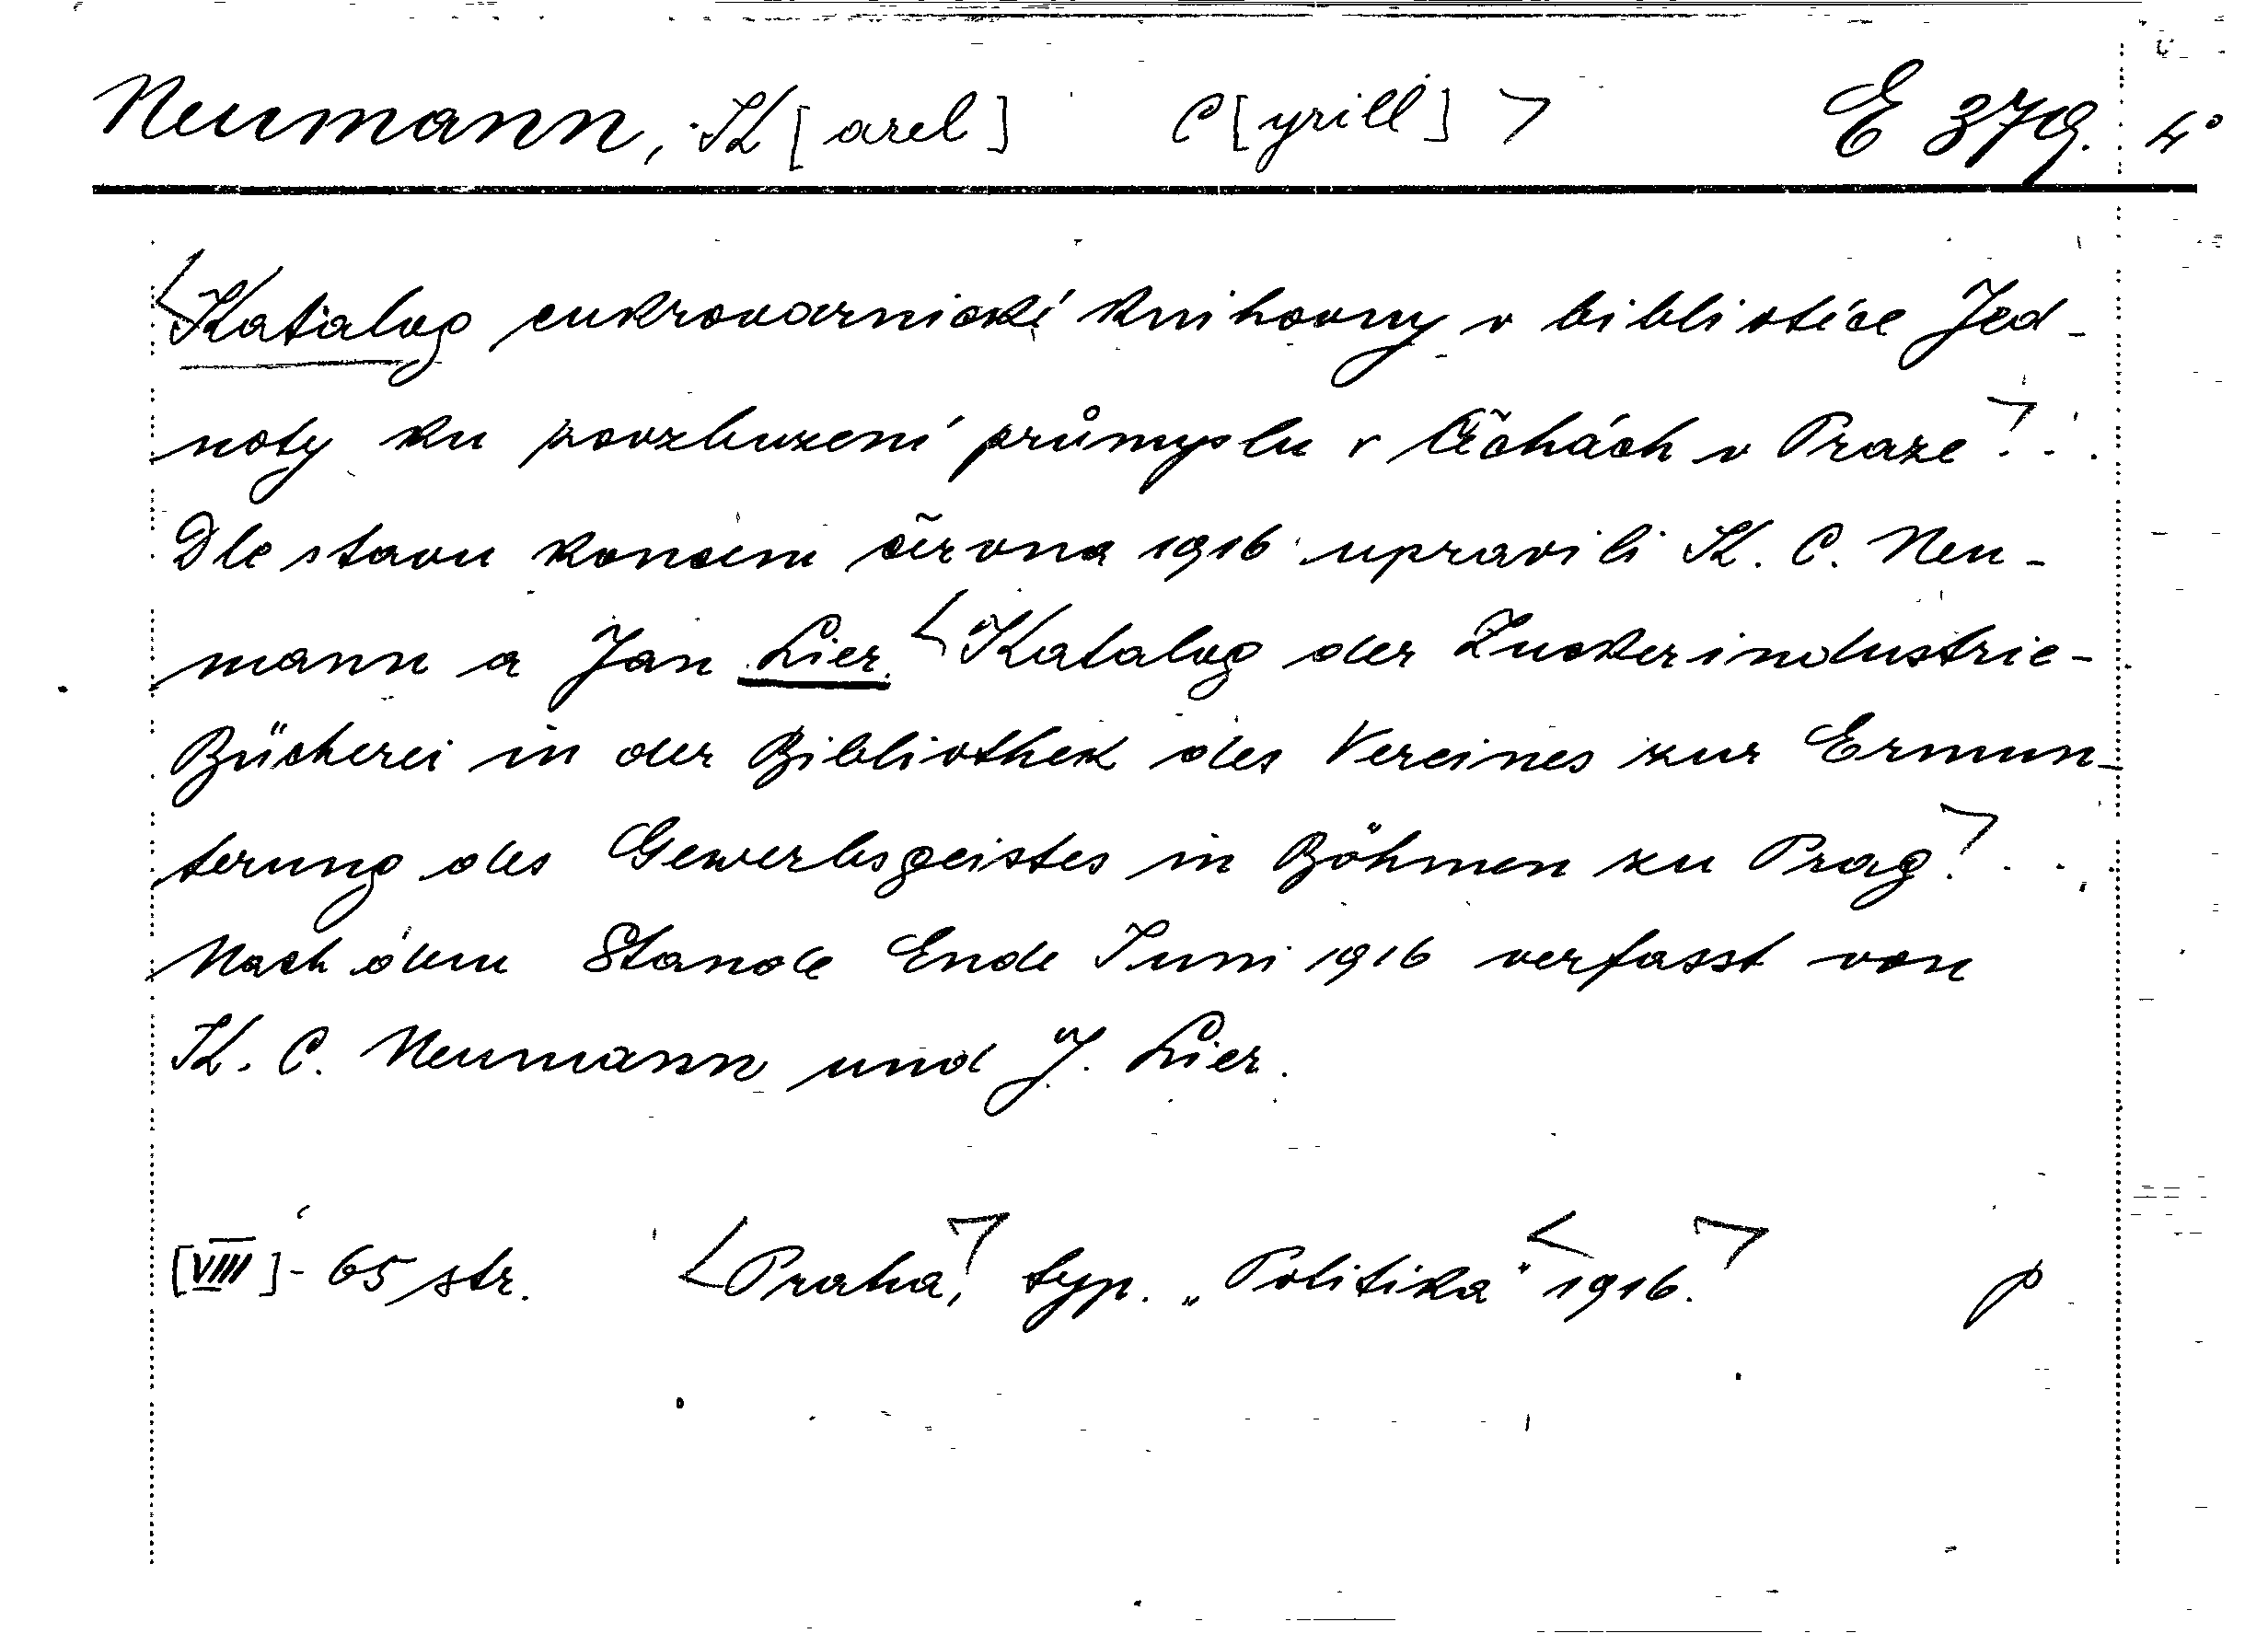 Neumann, K[arel] C[yrill] E 379. 4°
Katalog cukrovarnické knihovny v bibliotéce Jed-
noty ku povzbuzení průmyslu v Čechách v Praze...
Dle stavu koncem června 1916 upravili K. C. Neu-
mann a Jan Lier. Katalog der Zuckerindustrie-
Bücherei in der Bibliothek des Vereines zur Ermun-
terung des Gewerbsgeistes in Böhmen zu Prag...
Nach dem Stande Ende Juni 1916 verfasst von
K. C. Neumann und J. Lier.
[VIII]-65 str. Praha, typ. „Politika" 1916. p